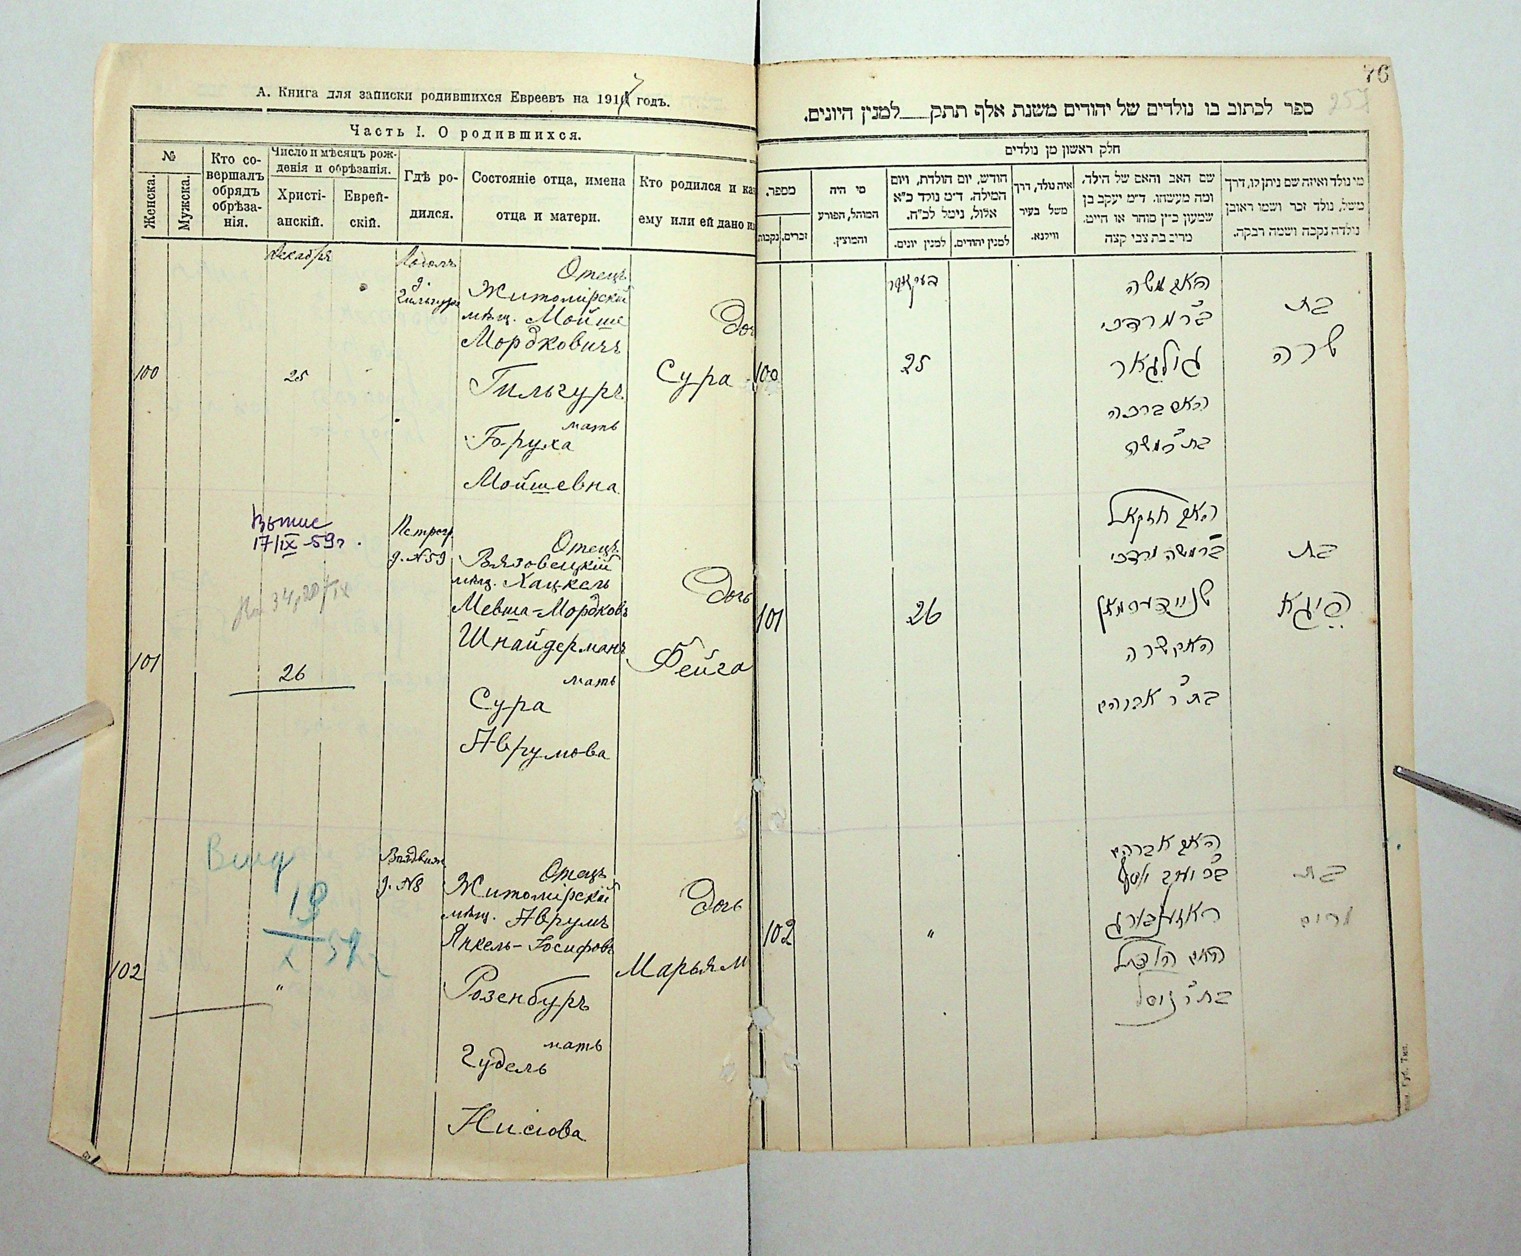 А. Книга для записки родившихся Евреевъ на 1917 годъ.
Часть I. О родившихся.
№
Женска.
Мужска.
Кто со-
вершалъ
обрядъ
обрѣза-
нія.
Число и мѣсяцъ рож-
денія и обрѣзанія.
Христі-
анскій.
Еврей-
скій.
Гдѣ ро-
дился.
Состояніе отца, имена
отца и матери.
Кто родился и ка
ему или ей дано и
Декабрь
100
25
Отецъ
Житомірскій
мѣщ. Мойше
Мордковичъ
Гильгуръ
мать
Боруха
Мойшевна
Доч
Сура
101
17/IX-59г.
26
Петрогр.
д. №59
Отецъ
Вязовецкій
мѣщ. Хацкель
Мевша-Мордковъ
Шнайдерманъ
мать
Сура
Аврумова
Дочь
Фейга
102
"
19
X 59
д. №8
Отецъ
Житомірскій
мѣщ. Аврумъ
Янкель-Іосифовъ
Розенбургъ
мать
Гудель
Нисіова
Дочь
Марьям
76
257
ספר לכתוב בו נולדים של יהודים משנת אלף תתק___למנין היונים.
חלק ראשון מן נולדים
מספר.
נקבות
זכרים.
מי היה
המוהל, הפורע
והמוצץ.
חודש, יום הולדת, ויום
המילה. ד״מ נולד כ״א
אלול, נימל לכ״ח.
למנין יונים.
למנין יהודים.
איה נולד, דרך
משל בעיר
ווילנא.
שם האב והאם של הילד.
ומה מעשהו. ד״מ יעקב בן
שמעון כ״ץ סוחר או חייט.
מרים בת צבי קצה
מי נולד ואיזה שם ניתן לו, דרך
משל, נולד זכר ושמו ראובן
נולדה נקבה ושמה רבקה.
100
25
האב משה
ב״ר מרדכי
גולגאר
האם ברכה
בת ר׳ משה
בת
שרה
101
26
האב חזקאל
ב״ר משה מרדכי
שניידערמאן
האם שרה
בת ר׳ אברהם
בת
פייגא
102
"
האב אברהם
ב״ר יעקב יוסף
ראזענבורג
האם הודיל
בת
מרים